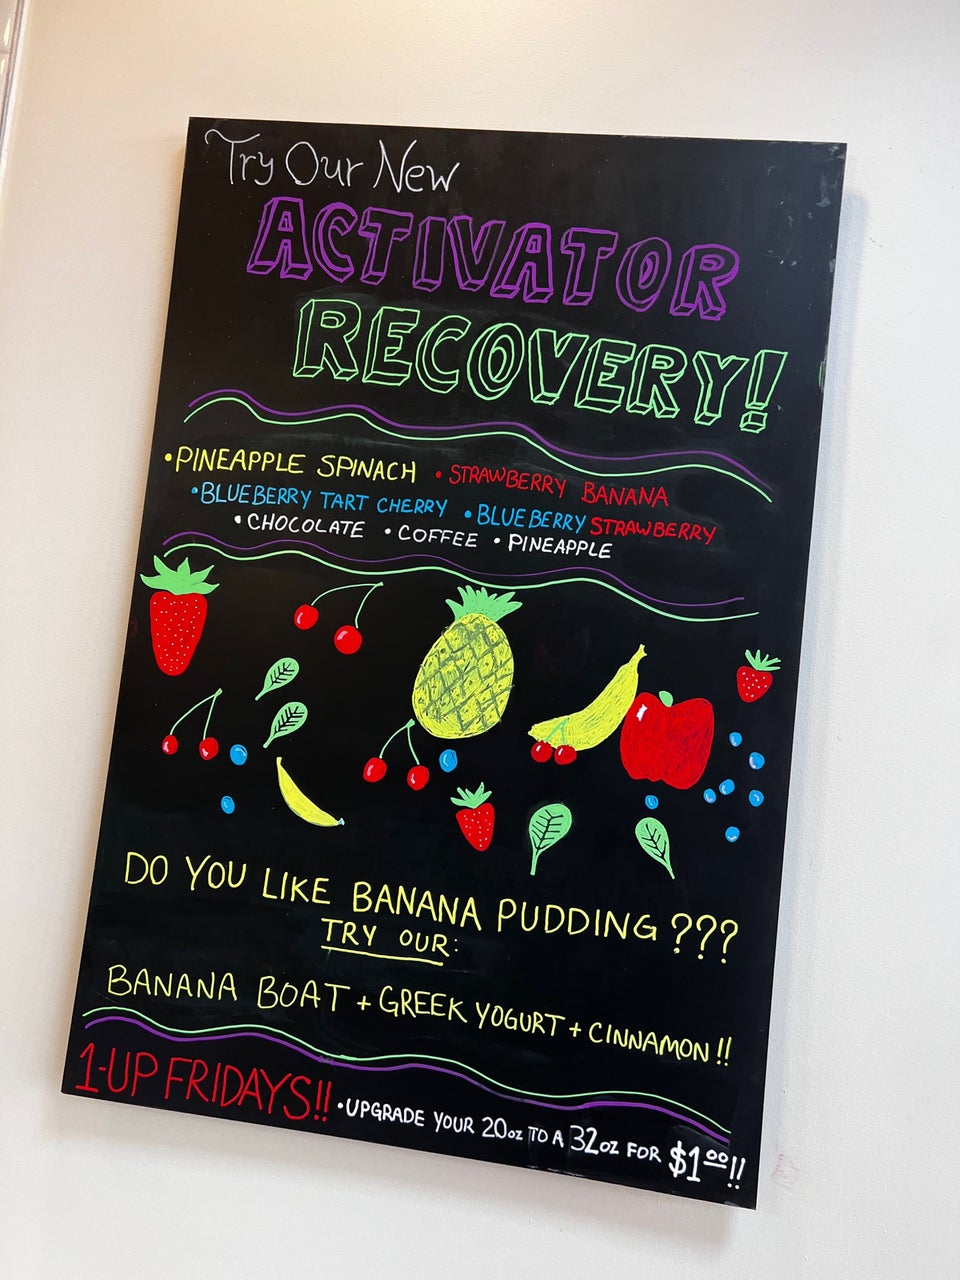 Try Our New
ACTIVATOR
RECOVERY!
•PINEAPPLE SPINACH •STRAWBERRY BANANA
•BLUEBERRY TART CHERRY •BLUEBERRY STRAWBERRY
•CHOCOLATE •COFFEE •PINEAPPLE
DO YOU LIKE BANANA PUDDING???
TRY OUR:
BANANA BOAT + GREEK YOGURT + CINNAMON!!
1-UP FRIDAYS!! •UPGRADE YOUR 20oz TO A 32oz FOR $1.00!!